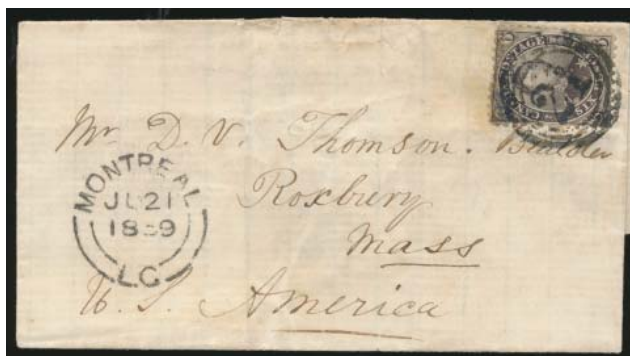 Mr D. V. Thomson. Builder
Roxbury
Mass
U. S. America
MONTREAL
JU 21
1859
L.C.
POSTAGE